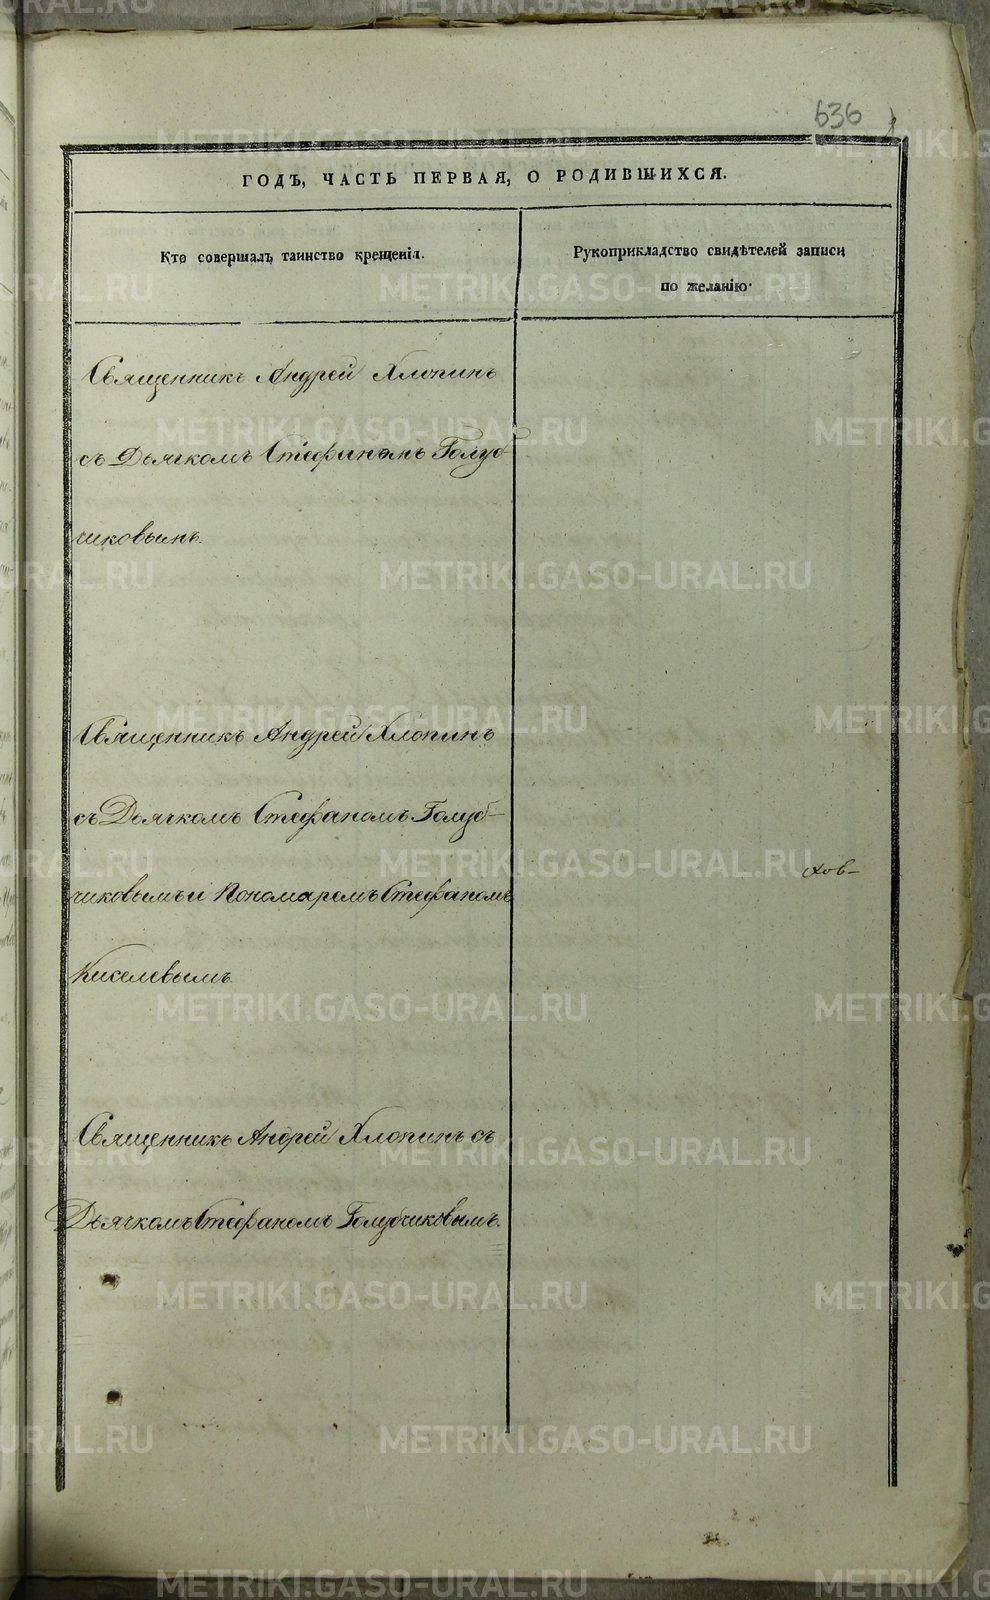 636
ГОДЪ, ЧАСТЬ ПЕРВАЯ, О РОДИВШИХСЯ.
Кто совершалъ таинство крещенія.
Рукоприкладство свидѣтелей записи
по желанію.
Священникъ Андрей Хлопинъ
съ Дьячкомъ Стефаномъ Голуб-
чиковымъ.
Священникъ Андрей Хлопинъ
съ Дьячкомъ Стефаномъ Голуб-
чиковымъ и Пономаремъ Стефаномъ
Киселевымъ.
Священникъ Андрей Хлопинъ съ
Дьячкомъ Стефаномъ Голубчиковымъ.
METRIKI.GASO-URAL.RU